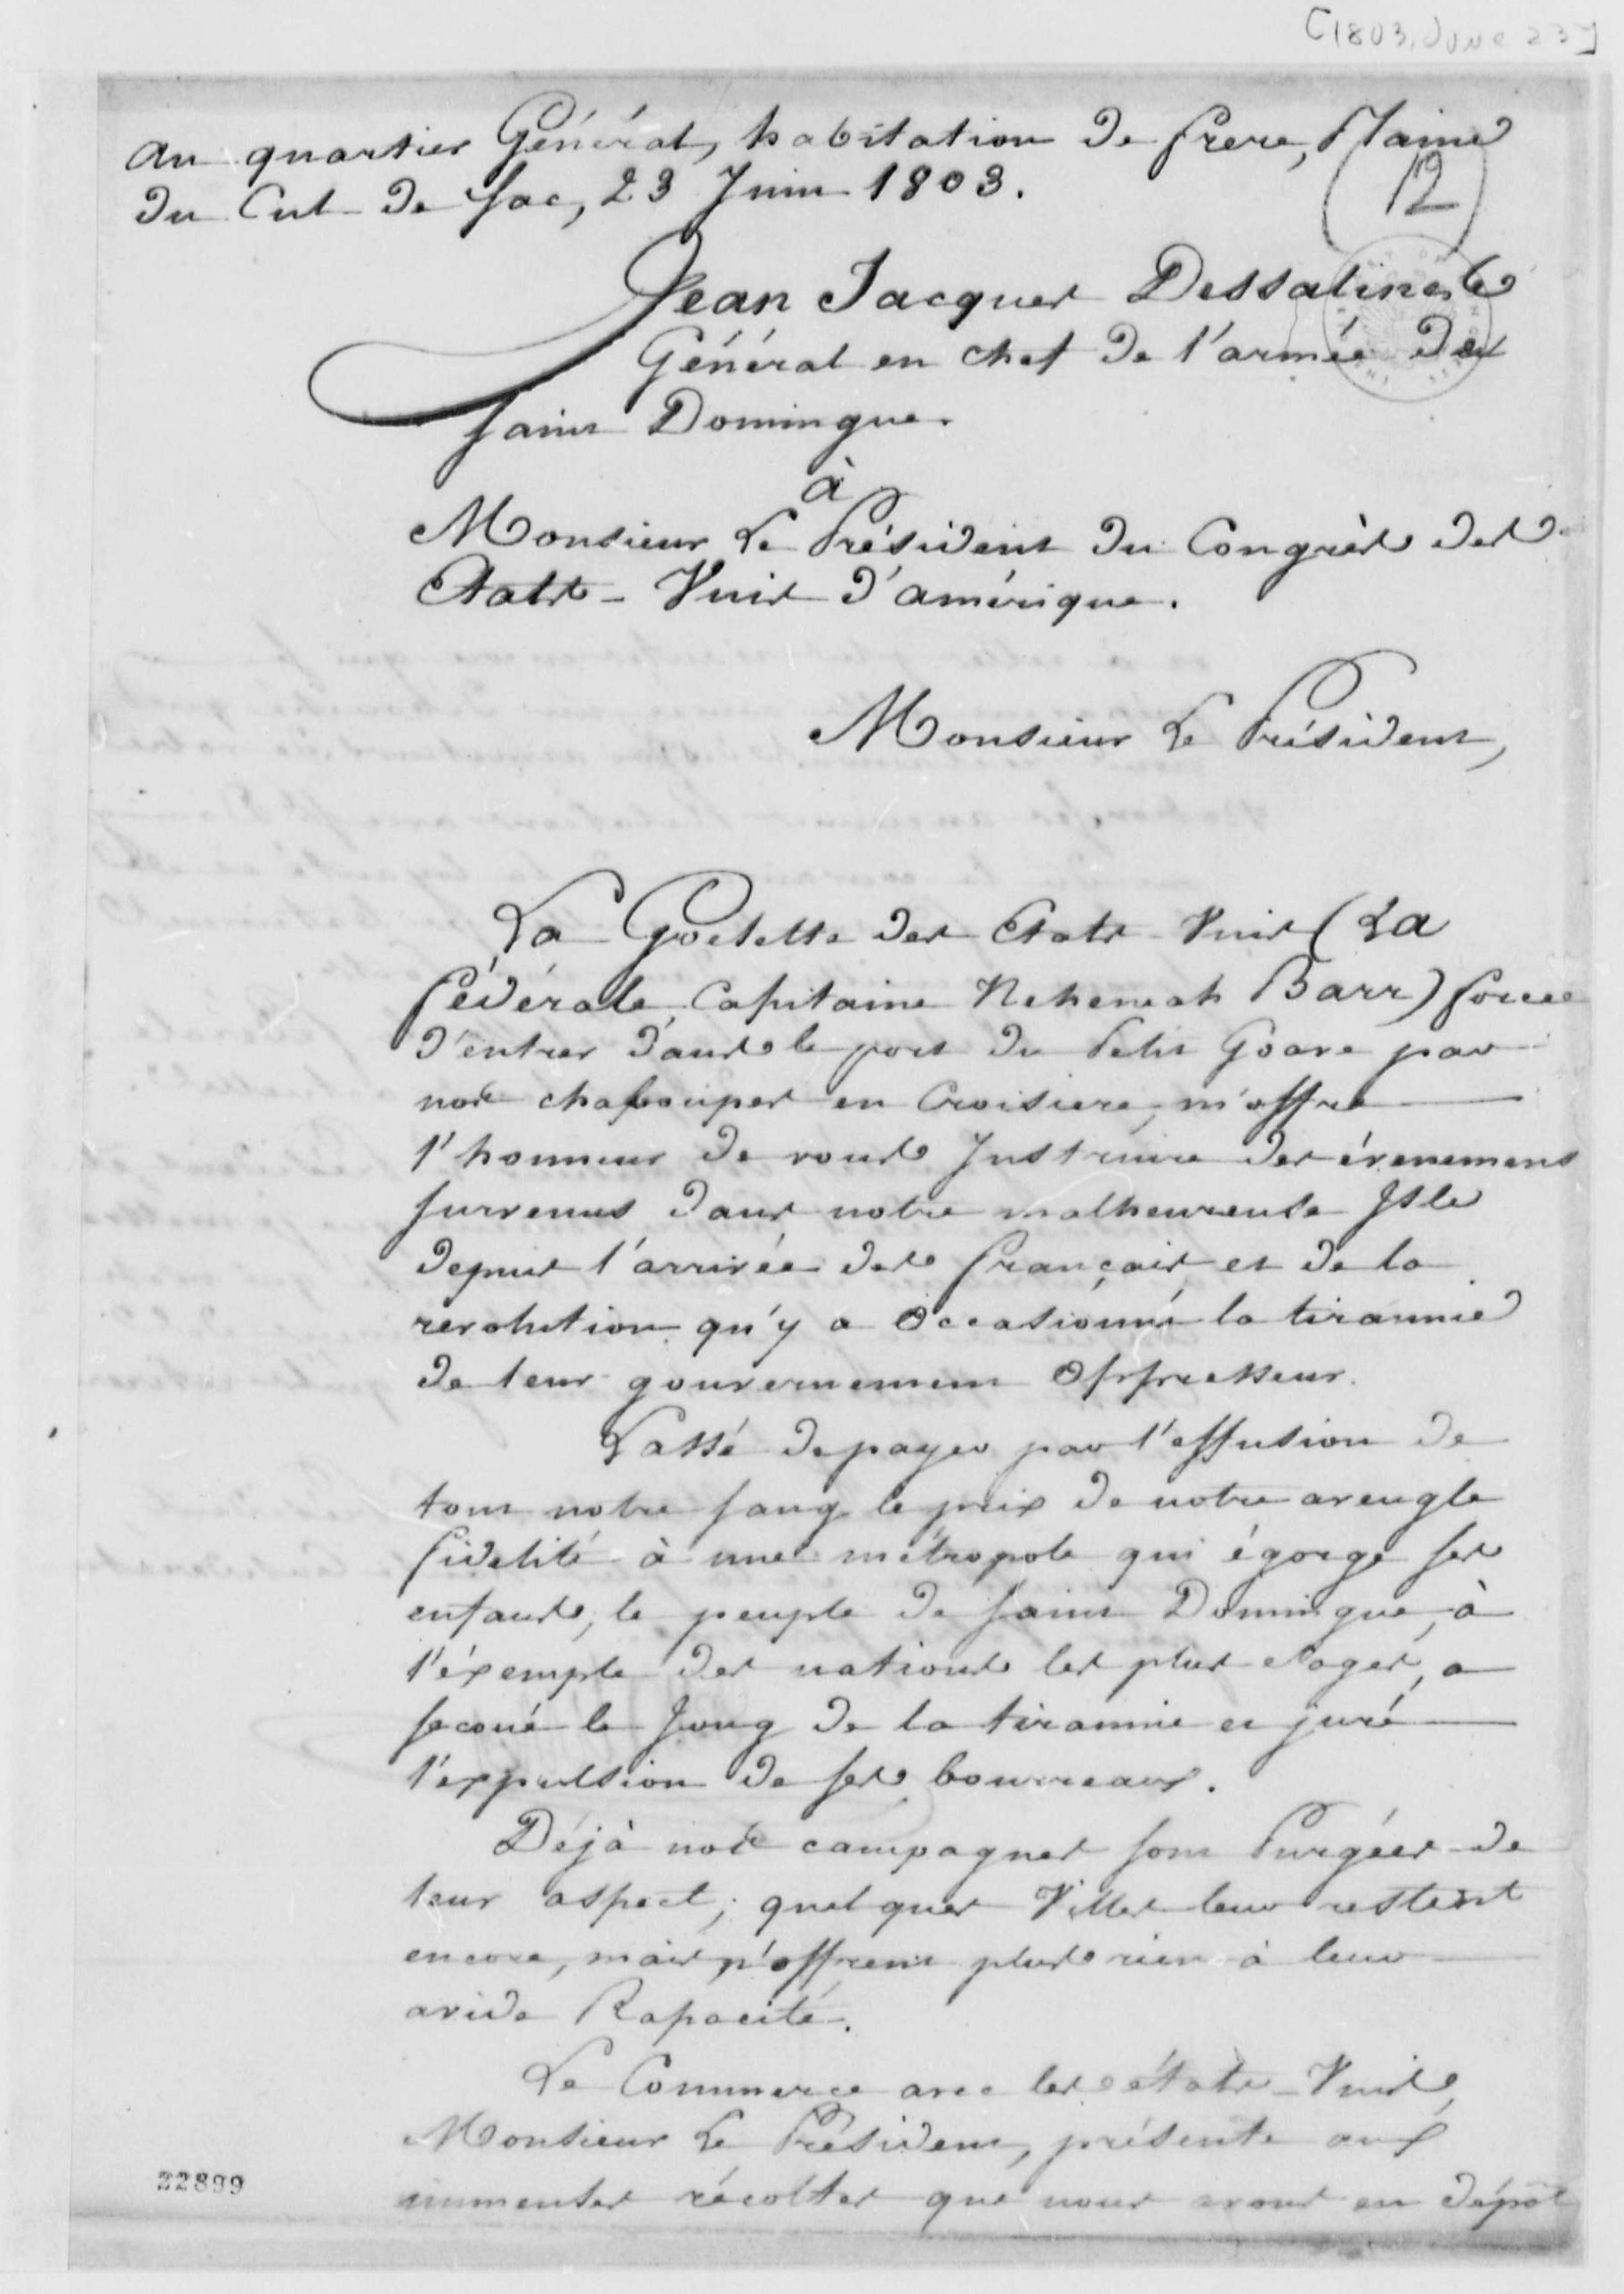 [1803, June 23]
Au quartier Général, habitation de frere, Plaine
du Cul de Sac, 23 Juin 1803.
(12)
Jean Jacques Dessalines
Général en chef de l'armée de
Saint Domingue.
à
Monsieur Le Président du Congrès des
Etats-Unis d'amérique.
Monsieur Le Président,
La Goelette des Etats Unis (La
fédérale, Capitaine Nehemiah Barr) forcée
d'entrer dans le port du Petit Goave par
nos chaloupes en Croisiere, m'offre
l'honneur de vous Instruire des évenemens
survenus dans notre malheureuse Isle
depuis l'arrivée des français et de la
revolution qu'y a Occasionné la tirannie
de leur gouvernement Oppresseur.
Lassé de payer par l'effusion de
tout notre sang le prix de notre aveugle
fidelité à une métropole qui égorge ses
enfants, le peuple de Saint Domingue, à
l'éxemple des nations les plus sages, a
secoué le Joug de la tirannie et juré
l'expulsion de ses bourreaux.
Déjà nos campagnes sont Purgées de
leur aspect; quelques Villes leur restent
encore, mais n'offrent plus rien à leur
avide Rapacité.
Le Commerce avec les états-Unis,
Monsieur Le Président, présente aux
immenses récoltes que nous avons en dépôt
22899